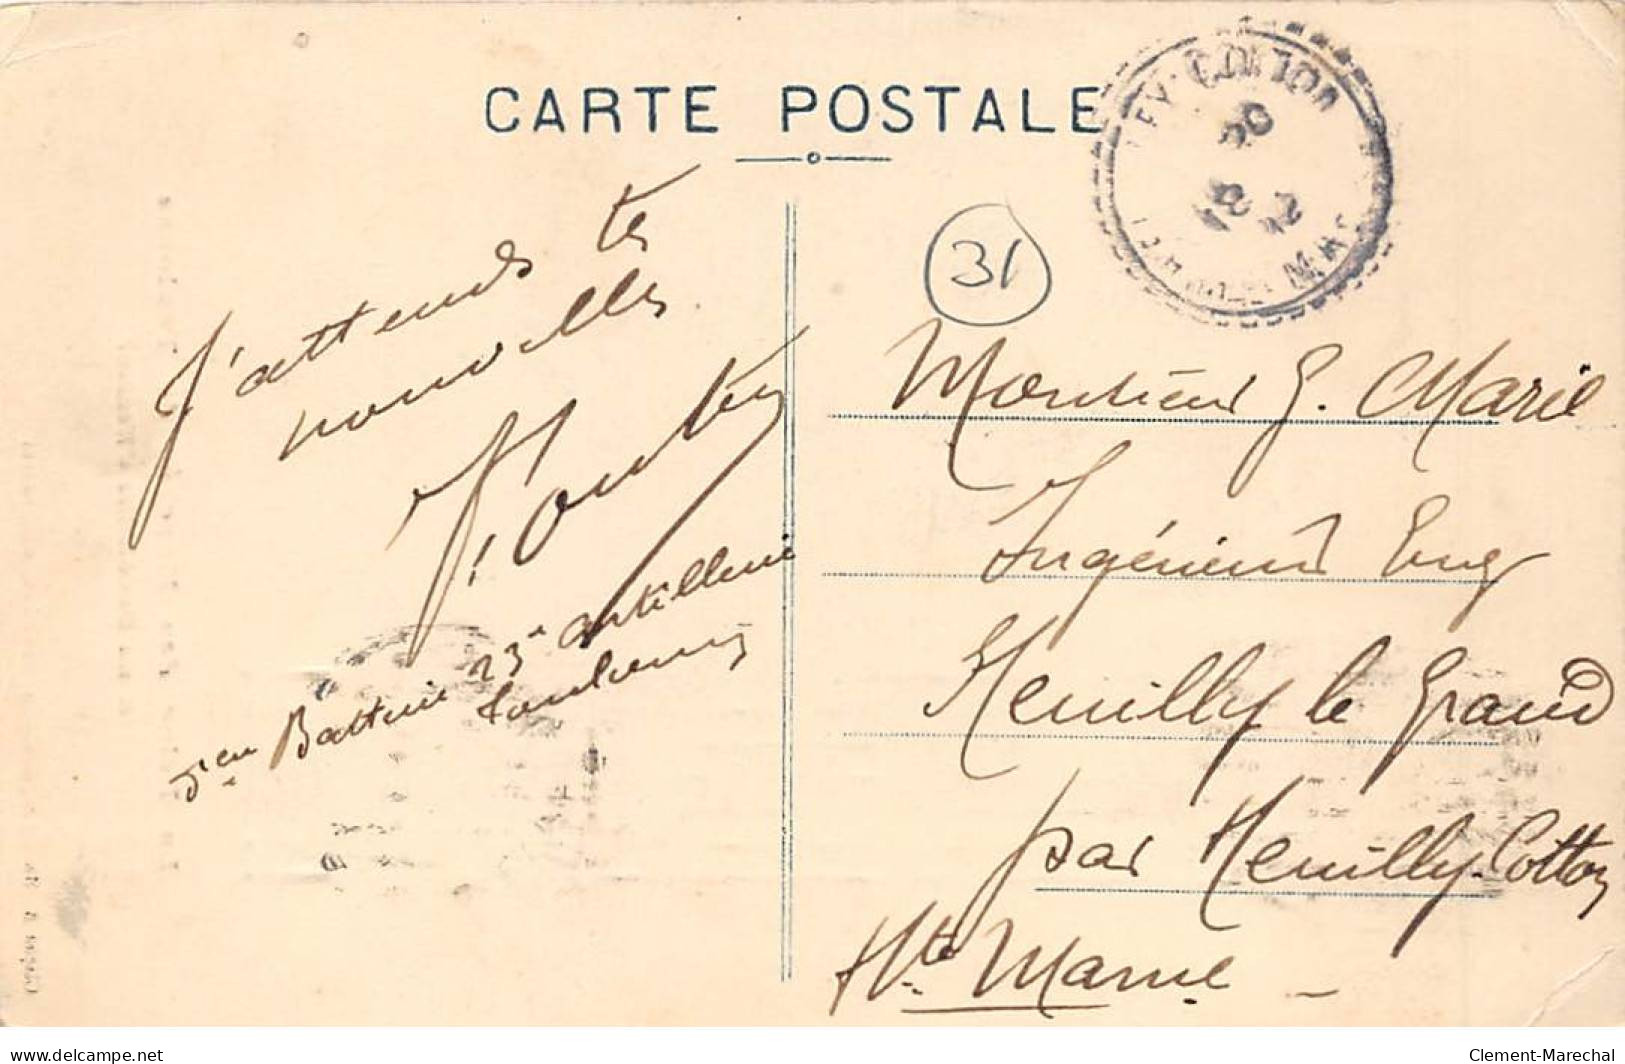 CARTE POSTALE
31
J'attends tes
nouvelles
5em Batterie 23e artillerie
Toulouse
Monsieur G. Marie
Ingénieur
Neuilly le Grand
par Neuilly-Cotton
Hte Marne
www.delcampe.net
Clement-Marechal